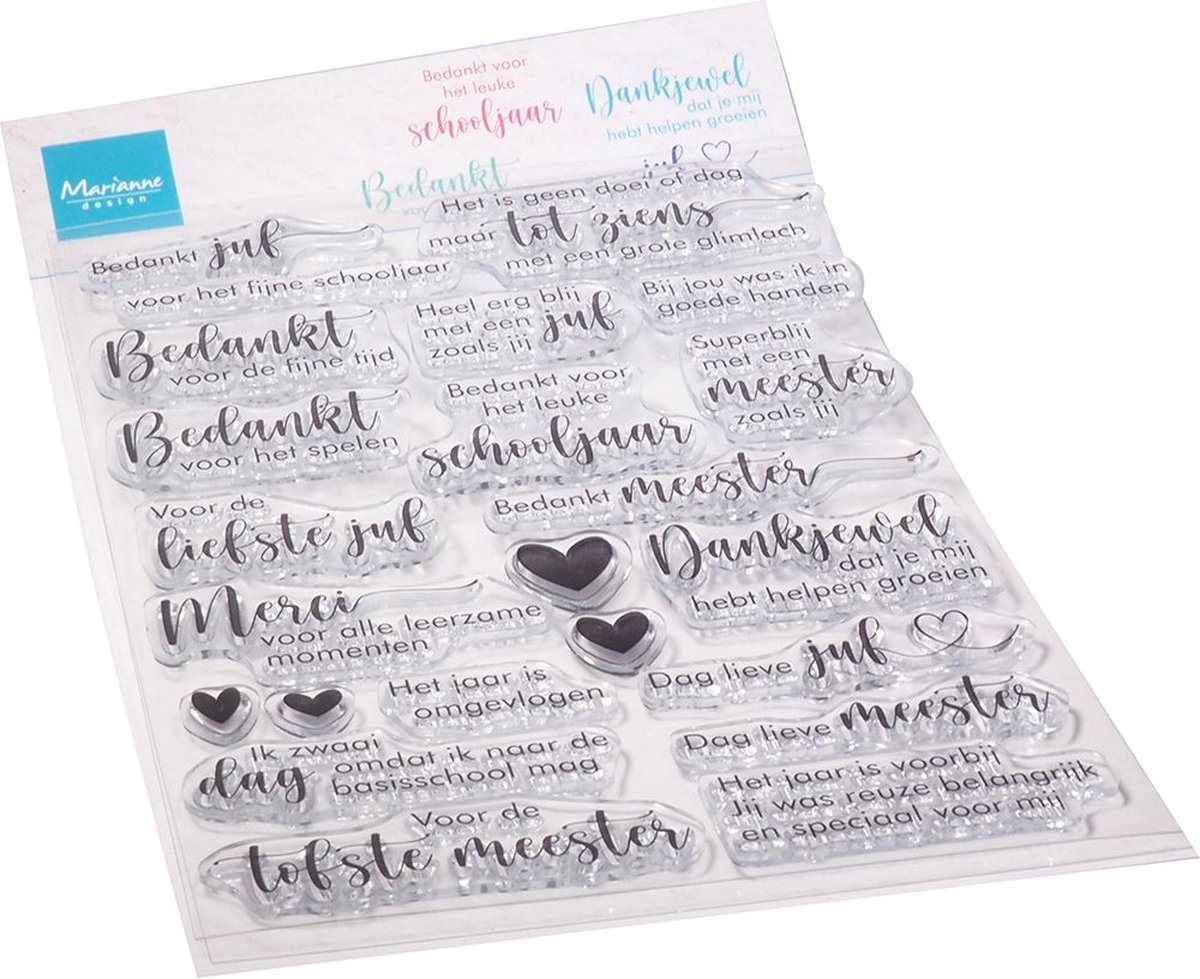 Bedankt voor
het leuke
schooljaar
Dankjewel
dat je mij
hebt helpen groeien
Marianne
design
Bedankt
juf
Bedankt juf
voor het fijne schooljaar
Het is geen doei of dag
maar tot ziens
met een grote glimlach
Bedankt
voor de fijne tijd
Heel erg blij
met een juf
zoals jij
Bij jou was ik in
goede handen
Bedankt
voor het spelen
Bedankt voor
het leuke
schooljaar
Superblij
met een
meester
zoals jij
Voor de
liefste juf
Bedankt meester
Dankjewel
dat je mij
hebt helpen groeien
Merci
voor alle leerzame
momenten
Dag lieve juf
Het jaar is
omgevlogen
Dag lieve meester
Ik zwaai
dag omdat ik naar de
basisschool mag
Het jaar is voorbij
Jij was reuze belangrijk
en speciaal voor mij
Voor de
tofste meester